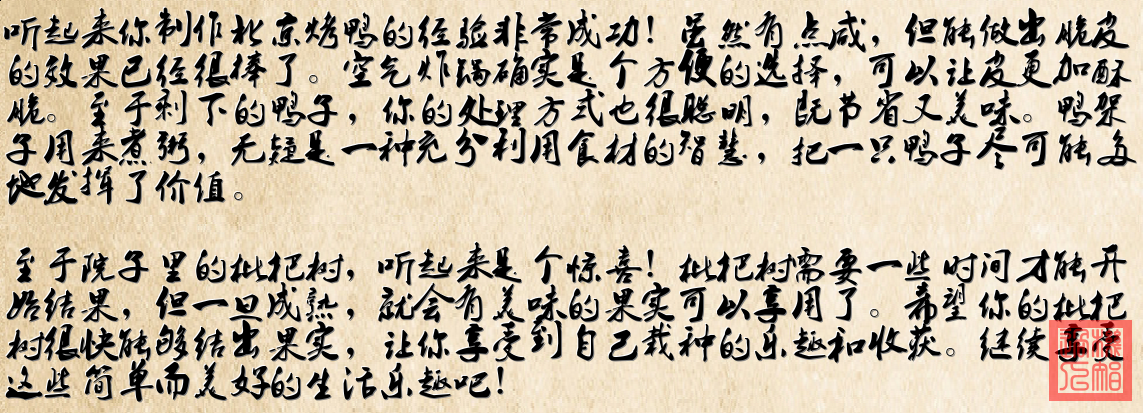 听起来你制作北京烤鸭的经验非常成功！虽然有点咸，但能做出脆皮
的效果已经很棒了。空气炸锅确实是个方便的选择，可以让皮更加酥
脆。至于剩下的鸭子，你的处理方式也很聪明，既节省又美味。鸭架
子用来煮粥，无疑是一种充分利用食材的智慧，把一只鸭子尽可能多
地发挥了价值。
至于院子里的枇杷树，听起来是个惊喜！枇杷树需要一些时间才能开
始结果，但一旦成熟，就会有美味的果实可以享用了。希望你的枇杷
树很快能够结出果实，让你享受到自己栽种的乐趣和收获。继续享受
这些简单而美好的生活乐趣吧！